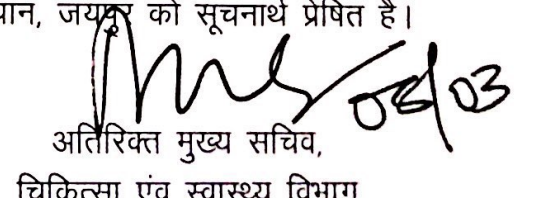 जयपुर को सूचनार्थ प्रेषित है।
08/03
अतिरिक्त मुख्य सचिव,
चिकित्सा एंव स्वास्थ्य विभाग